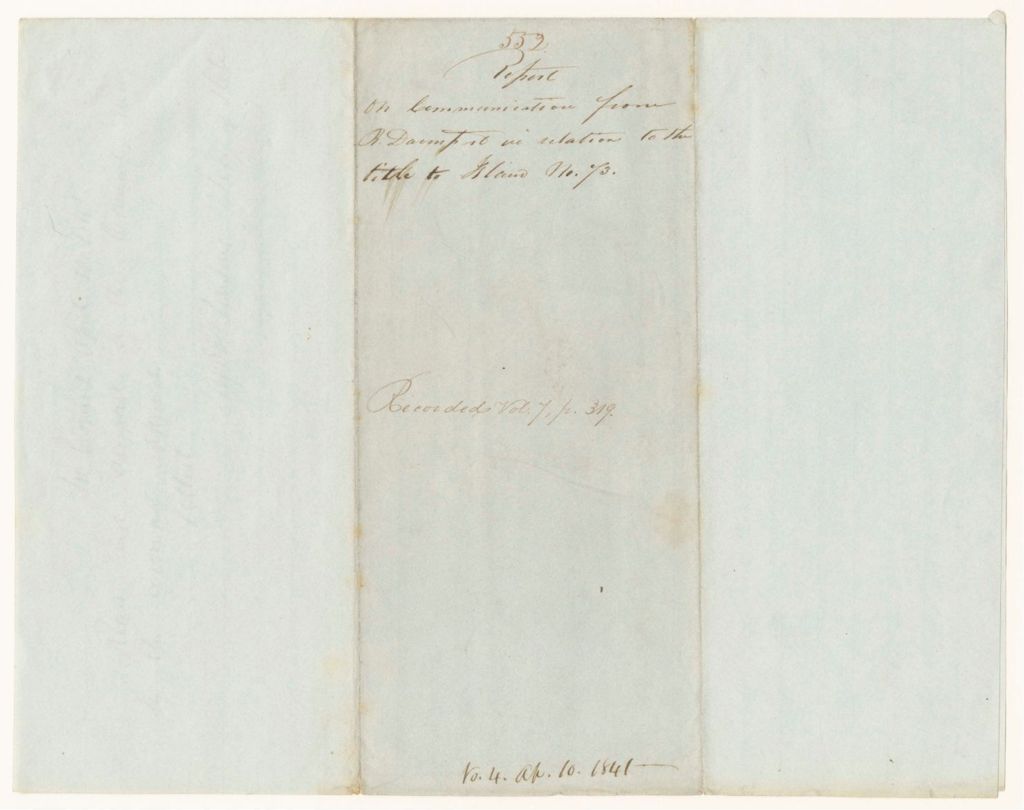 552
Report
On Communication from
R. Davenport in relation to the
title to Island No. 73.
Recorded, Vol. 7, p. 319.
No. 4. Ap. 10. 1841